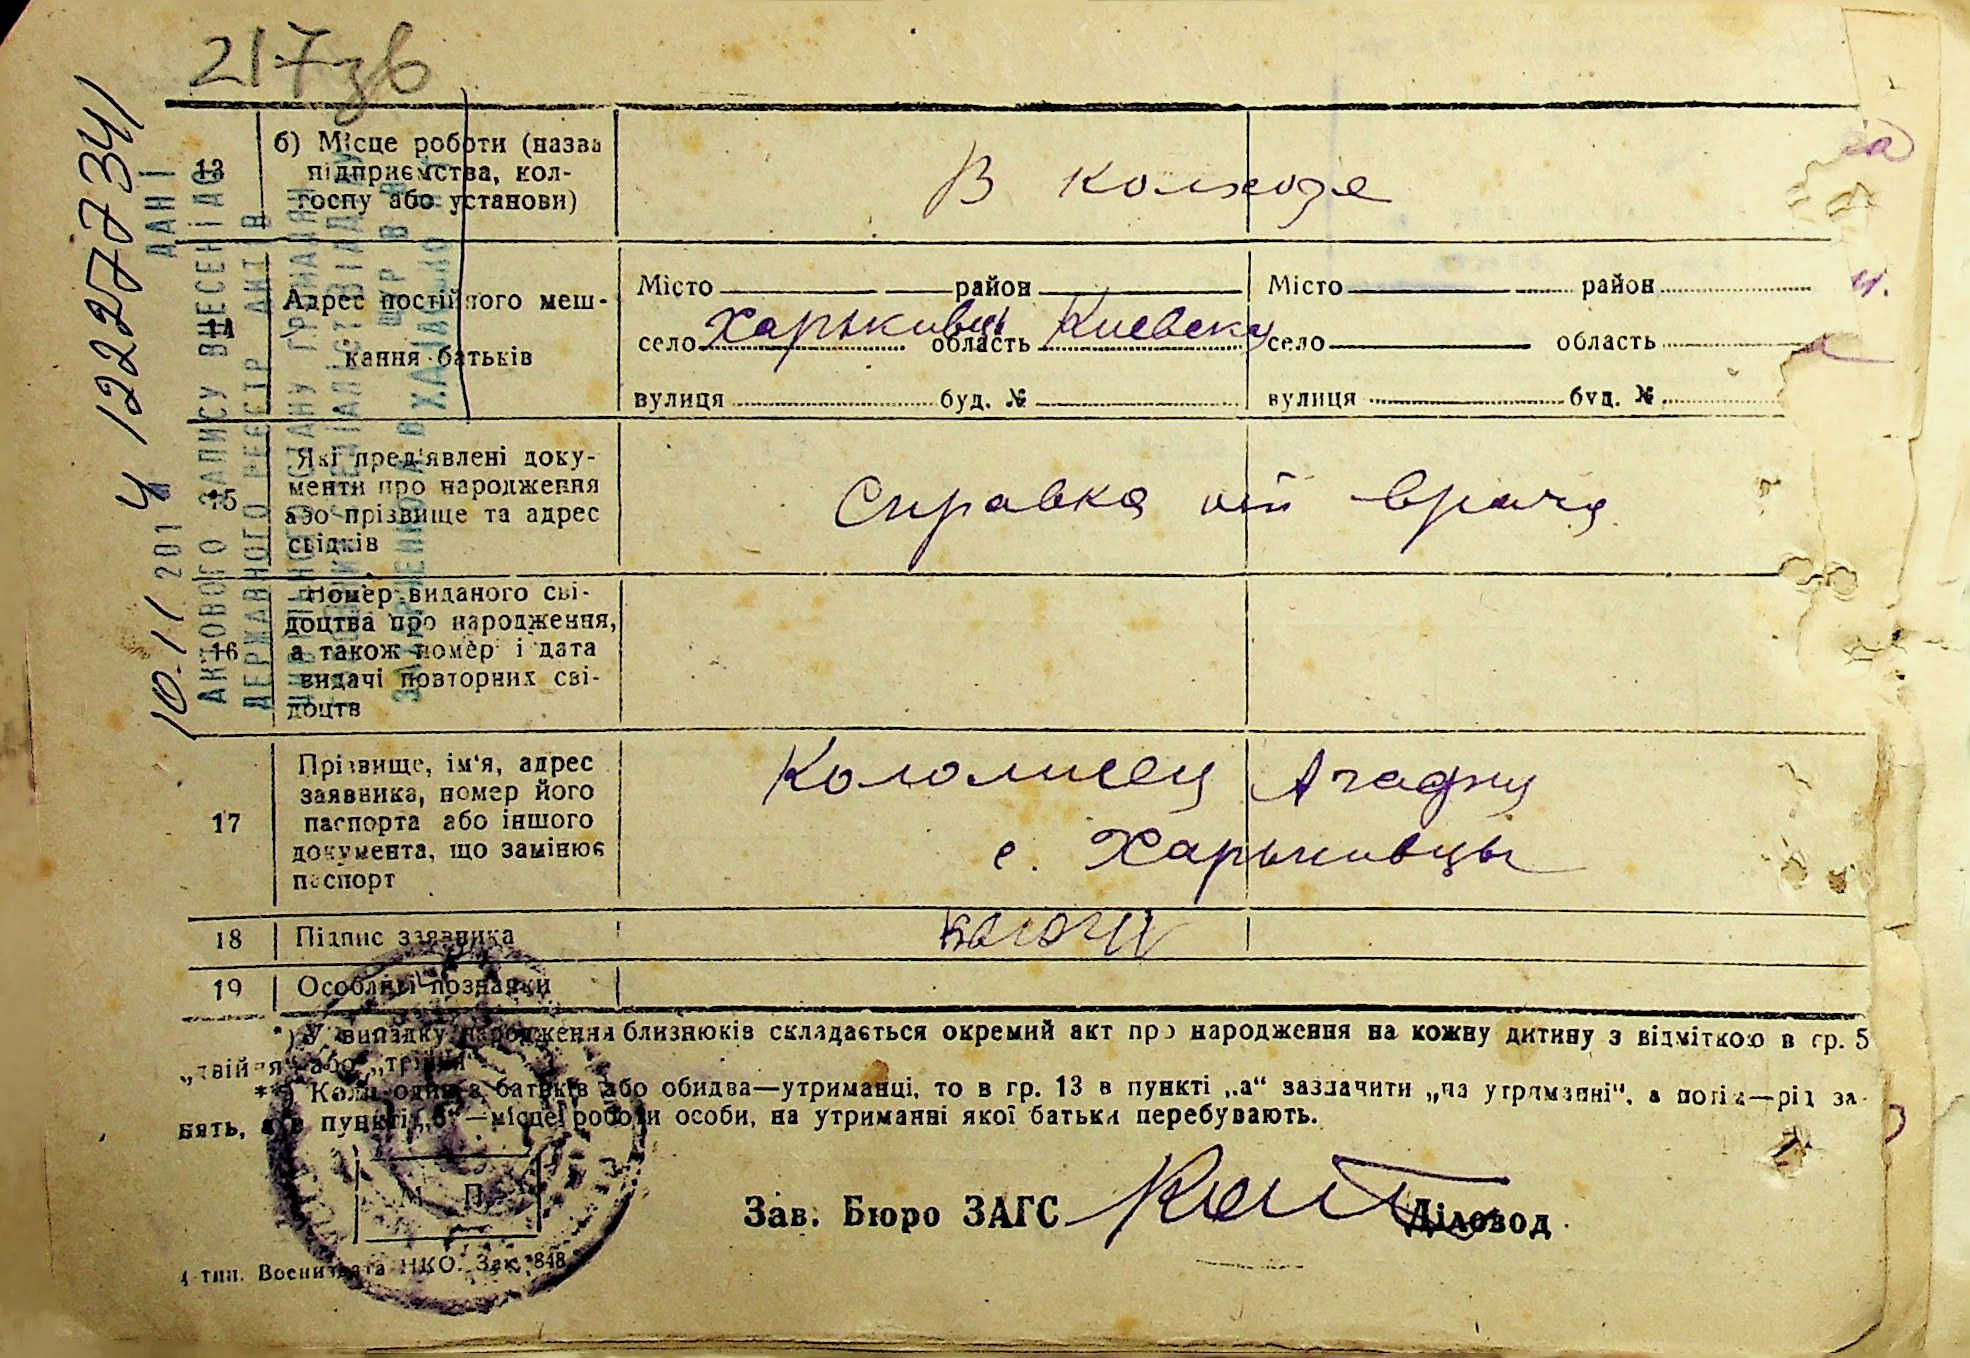 217зв
10.11 2014 12277341
ДАНІ
АКТОВОГО ЗАПИСУ ВНЕСЕНІ ДО
ДЕРЖАВНОГО РЕЄСТР АКТ В
13 б) Місце роботи (назва
підприємства, кол-
госпу або установи)
В колхозе
14 Адрес постійного меш-
кання батьків
Місто район
село Харькивцы область Киевска
вулиця буд. №
Місто район
село область
вулиця буд. №
15 Які пред'явлені доку-
менти про народження
або прізвище та адрес
свідків
Справка от врача
16 Номер виданого сві-
доцтва про народження,
а також номер і дата
видачі повторних сві-
доцтв
17 Прізвище, ім'я, адрес
заявника, номер його
паспорта або іншого
документа, що замінює
паспорт
Коломиец
с. Харькивцы
18 Підпис заявника
19 Особливі позначки
*) У випадку народження близнюків складається окремий акт про народження на кожну дитину з відміткою в гр. 5
„двійня“ або „трійня“
**) Коли один з батьків або обидва—утриманці, то в гр. 13 в пункті „а“ зазначити „на утриманні“, а потім—рід за-
нять, а в пункті „б“—місце роботи особи, на утриманні якої батьки перебувають.
М П
Зав. Бюро ЗАГС Діловод
тип. Воениздата НКО. Зак. 848